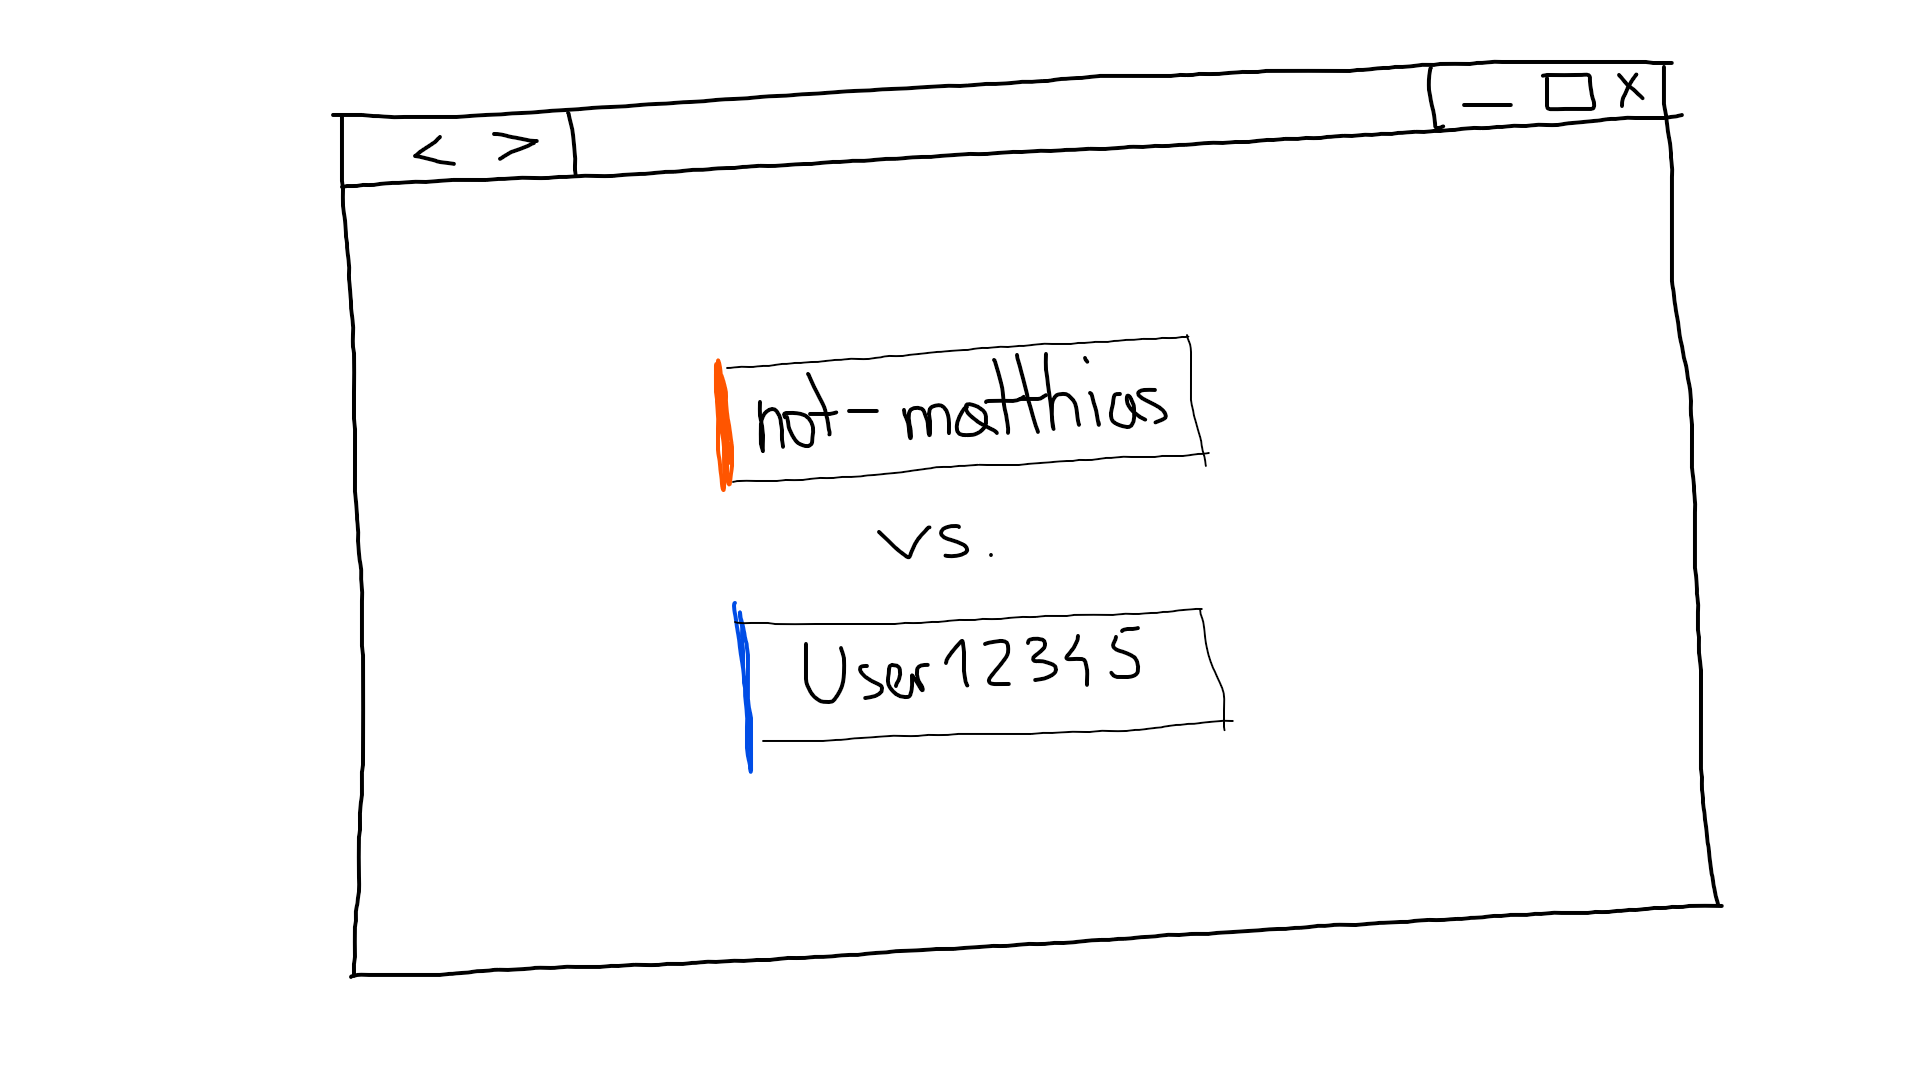 < >
not-matthias
vs.
User12345